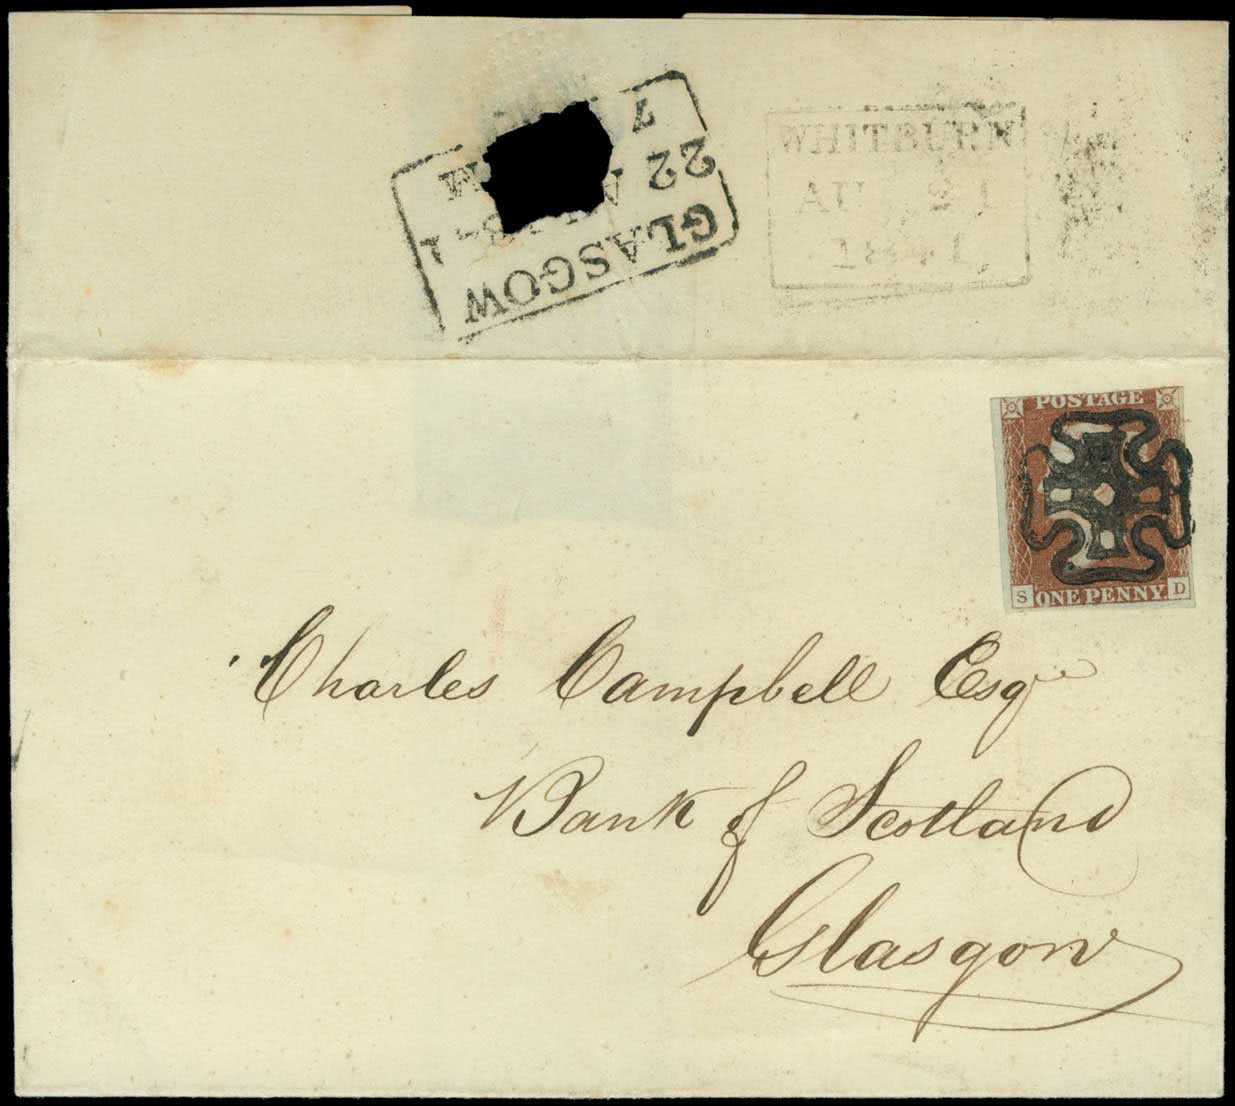 WHITBURN
AU 21
1841
GLASGOW
22 A
7
POSTAGE
S ONE PENNY. D
Charles Campbell Esqr
Bank of Scotland
Glasgow